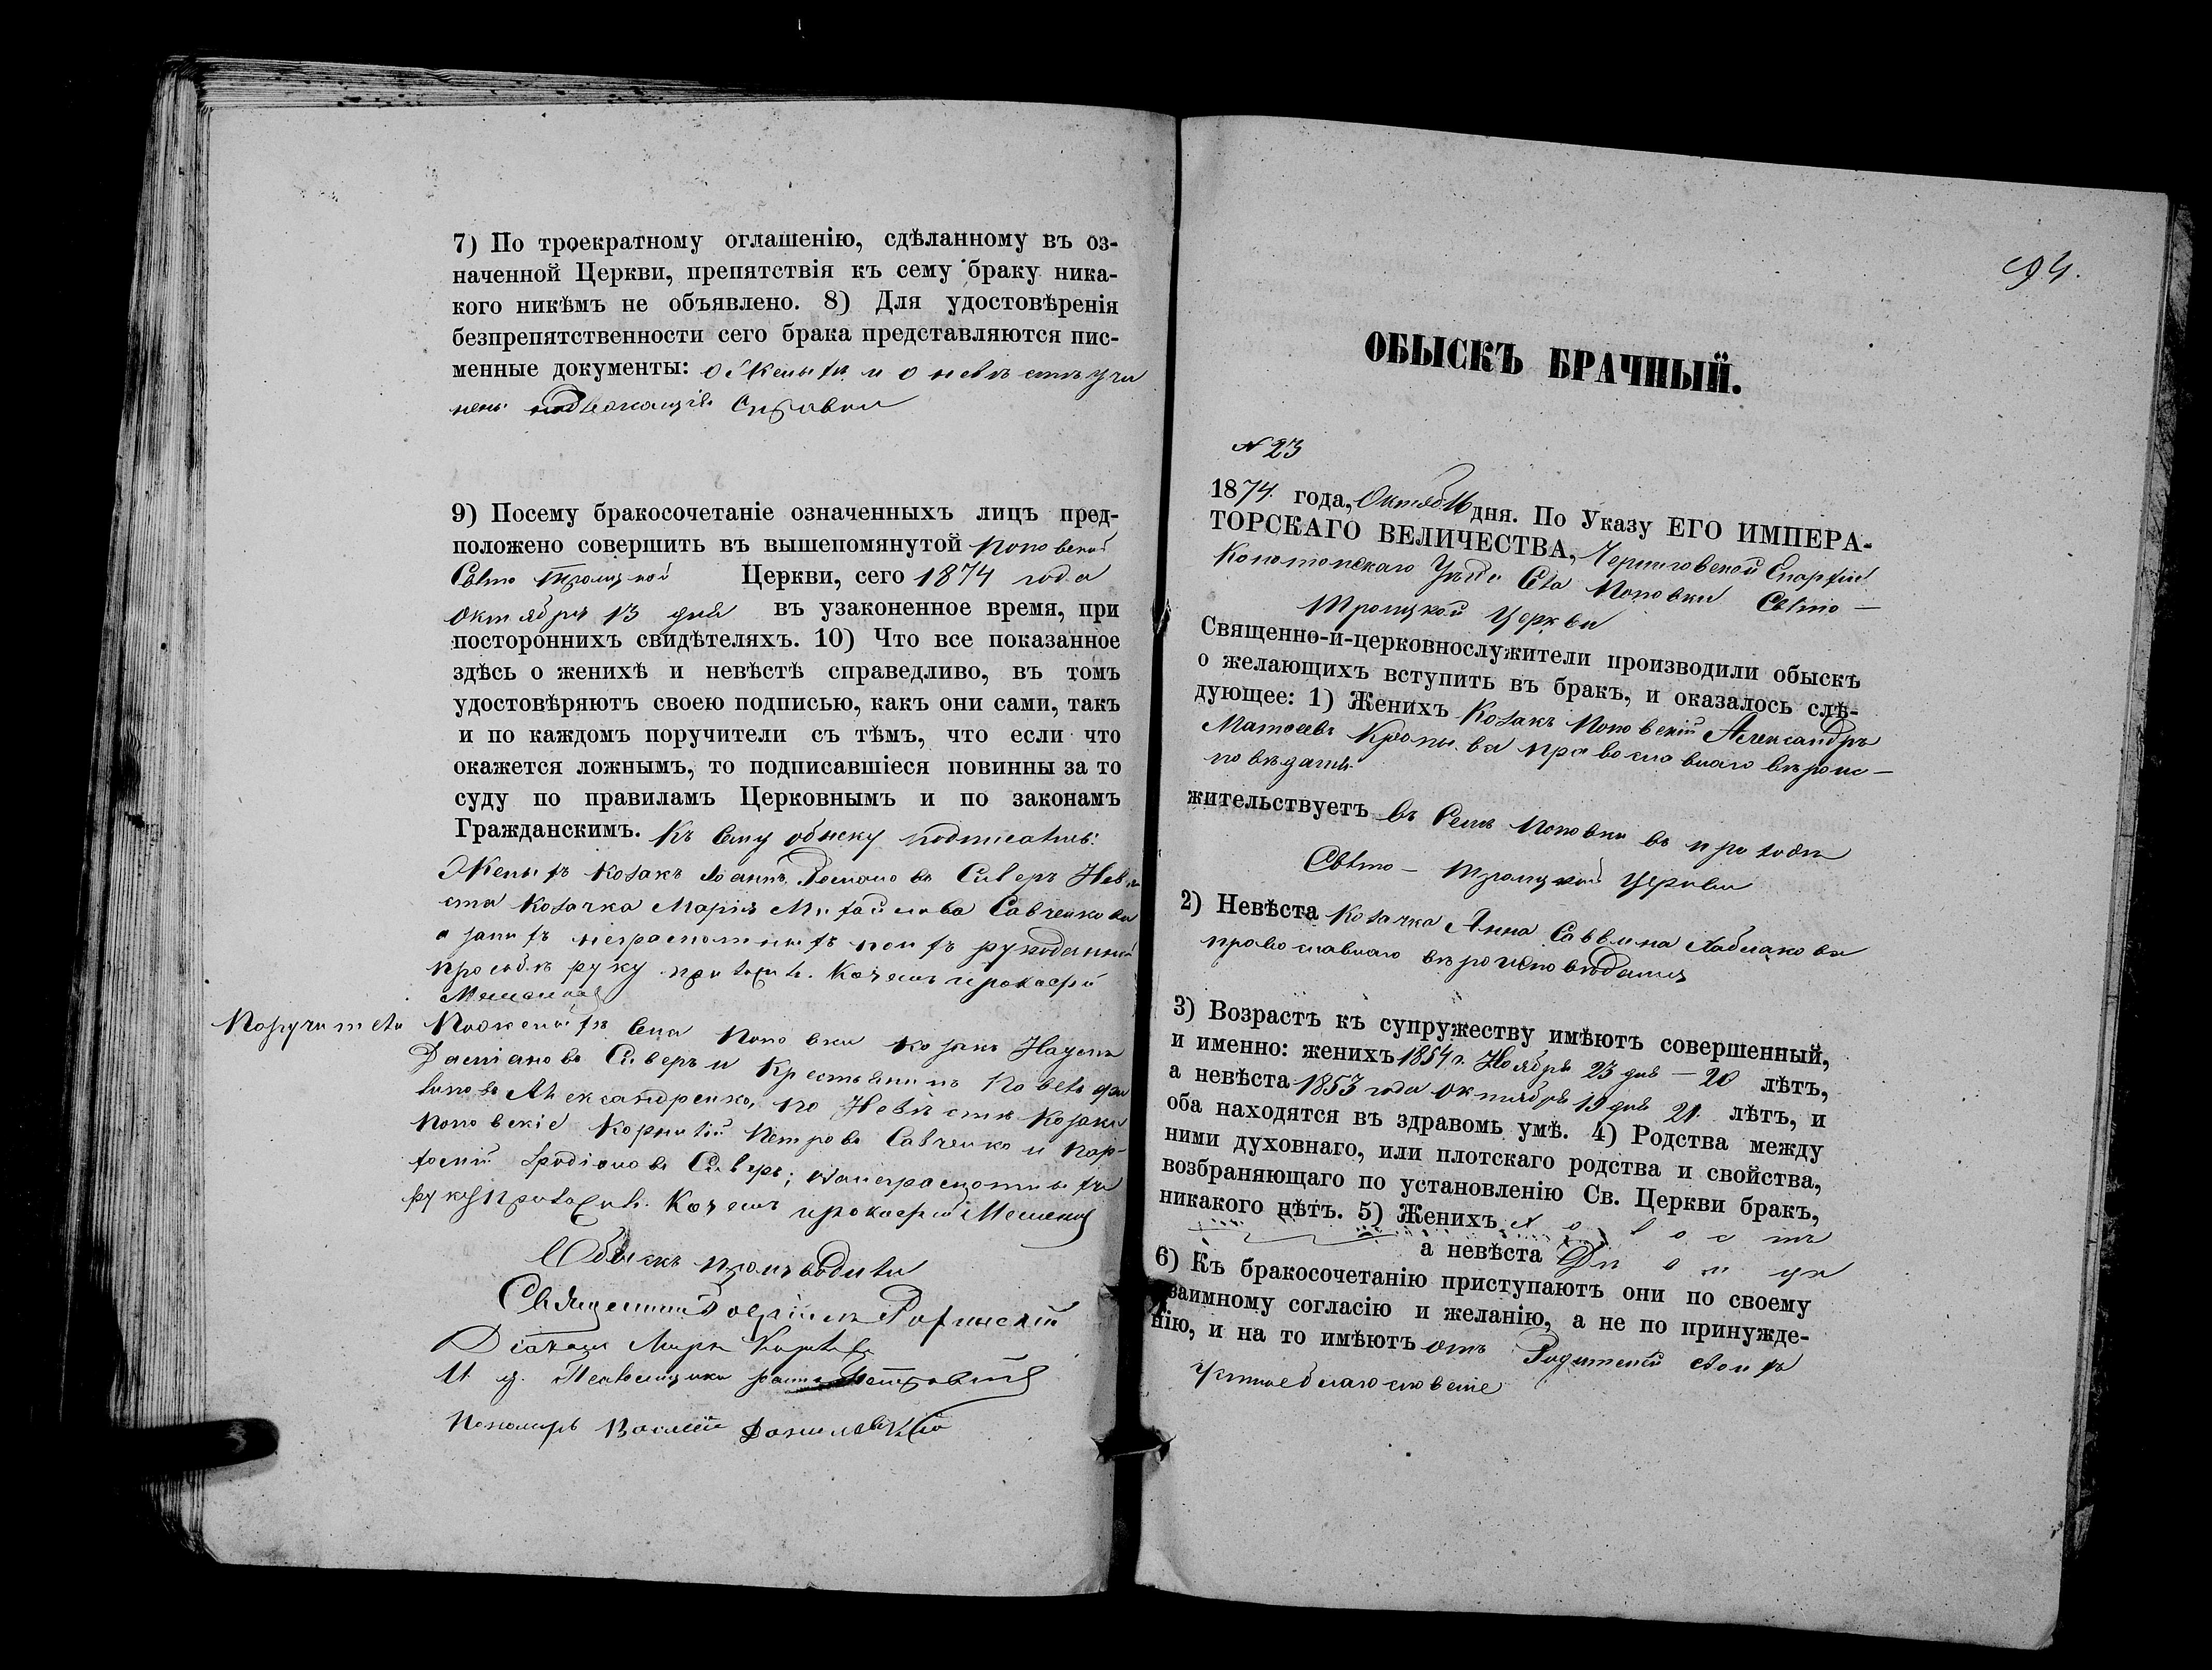 7) По троекратному оглашенію, сдѣланному въ оз-
наченной Церкви, препятствія къ сему браку ника-
кого никѣмъ не объявлено. 8) Для удостовѣренія
безпрепятственности сего брака представляются пис-
менные документы: о Женихѣ и о невѣстѣ учи
нены надлежащія Справки
9) Посему бракосочетаніе означенныхъ лицъ пред-
положено совершить въ вышепомянутой Поповской
Свято Троицкой Церкви, сего 1874 года
Октября 13 дня въ узаконенное время, при
постороннихъ свидѣтеляхъ. 10) Что все показанное
здѣсь о женихѣ и невѣстѣ справедливо, въ томъ
удостовѣряютъ своею подписью, какъ они сами, такъ
и по каждомъ поручители съ тѣмъ, что если что
окажется ложнымъ, то подписавшіеся повинны за то
суду по правиламъ Церковнымъ и по законамъ
Гражданскимъ. Къ сему обыску подписались:
Женихъ козакъ Іоаннъ Романовъ Сиверъ Невѣ
ста козачка Марія Михайлова Савченкова
а за нихъ неграмотныхъ по ихъ рукоданной
прозьбѣ руку приложилъ Козакъ
Поручители По женихѣ села Поповки козакъ Наумъ
Даміановъ Сиверъ и Крестьянинъ Павелъ Фи
липовъ Александренко, по Невѣстѣ Козаки
Поповскіе Корнилій Петровъ Савченко и Пар-
фений Иродіоновъ Сиверъ; а за неграмотныхъ
руку приложилъ Козакъ
Обыскъ производили
Священникъ
Діаконъ Маркъ
И. д. Псаломщика
Пономарь Василій Данилевскій
94.
ОБЫСКЪ БРАЧНЫЙ.
№ 23
1874 года, Октяб. 16 дня. По Указу ЕГО ИМПЕРА-
ТОРСКАГО ВЕЛИЧЕСТВА, Черниговской Епархіи
Конотопскаго Уѣзда Села Поповки Свято —
Троицкой Церкви
Священно-и-церковнослужители производили обыскъ
о желающихъ вступить въ бракъ, и оказалось слѣ-
дующее: 1) Женихъ Козакъ Поповскій Александръ
Матѳеевъ Кропива православнаго вѣроис —
повѣданія
жительствуетъ въ Селѣ Поповки въ приходѣ
Свято — Троицкой Церкви
2) Невѣста Козачка Анна Саввина
православнаго вѣроисповѣданія
3) Возрастъ къ супружеству имѣютъ совершенный,
и именно: женихъ 1854 г. Ноября 23 дня — 20 лѣтъ,
а невѣста 1853 года октября 19 дня 21 лѣтъ, и
оба находятся въ здравомъ умѣ. 4) Родства между
ними духовнаго, или плотскаго родства и свойства,
возбраняющаго по установленію Св. Церкви бракъ,
никакого нѣтъ. 5) Женихъ Холостъ
а невѣста Дѣвица
6) Къ бракосочетанію приступаютъ они по своему
взаимному согласію и желанію, а не по принужде-
нію, и на то имѣютъ отъ Родителей своихъ
Устное благословеніе